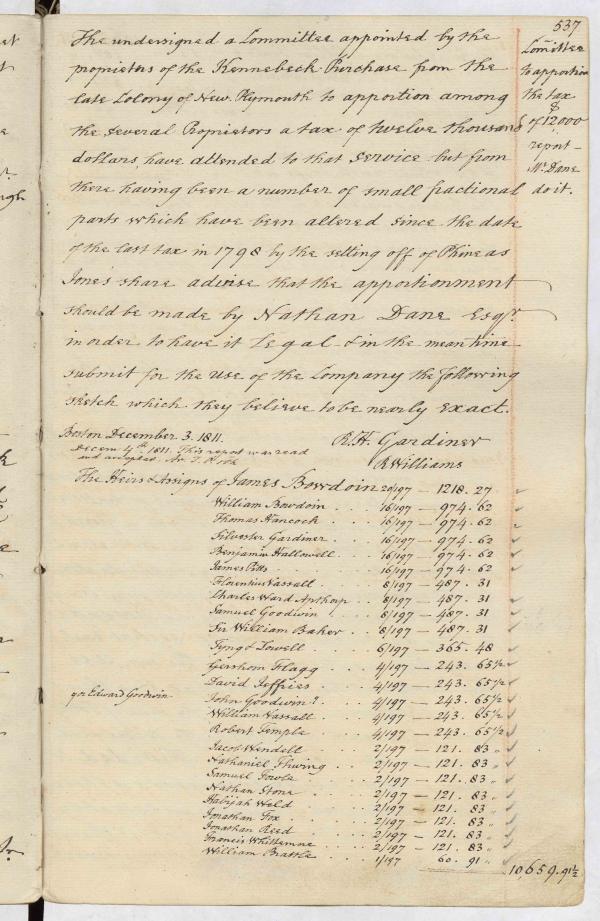 537
The undersigned a Committee appointed by the
proprietors of the Kennebeck Purchase from the
late Colony of New Plymouth to apportion among
the several Proprietors a tax of twelve thousand
dollars, have attended to that service but from
there having been a number of small fractional
parts which have been altered since the date
of the last tax in 1798 by the setting off of Phineas
Jones share advise that the apportionment
should be made by Nathan Dane Esqr.
in order to have it Legal & in the mean time
submit for the use of the Company the following
sketch which they believe to be nearly exact.
Comittee
to apportion
the tax
$
of 12,000
report -
Mr. Dane
do it.
Boston December 3. 1811.
R.H. Gardiner
Decem 4th 1811. This report was read
and accepted.
RWilliams
The Heirs & Assigns of James Bowdoin 20/197 — 1218. 27
William Bowdoin . . . 16/197 — 974. 62
Thomas Hancock . . . 16/197 — 974. 62
Silvester Gardiner . . . 16/197 — 974. 62
Benjamin Hallowell . . . 16/197 — 974. 62
James Pitts . . . 16/197 — 974. 62
Florentius Vassall . . . 8/197 — 487. 31
Charles Ward Apthorp . . 8/197 — 487. 31
Samuel Goodwin . . . 8/197 — 487. 31
Sir William Baker . . 8/197 — 487. 31
Tyng & Lowell . . . 6/197 — 365. 48
Gershom Flagg . . . 4/197 — 243. 65½
David Jeffries . . . 4/197 — 243. 65½
qr or Edward Goodwin John Goodwin? . . . 4/197 — 243. 65½
William Vassall . . . 4/197 — 243. 65½
Robert Temple . . . 4/197 — 243. 65½
Jacob Wendell . . . 2/197 — 121. 83 "
Nathaniel Thwing . . . 2/197 — 121. 83 "
Samuel Fowle . . . 2/197 — 121. 83 "
Nathan Stone . . . 2/197 — 121. 83 "
Habijah Weld . . . 2/197 — 121. 83 "
Jonathan Fox . . . 2/197 — 121. 83 "
Jonathan Reed . . . 2/197 — 121. 83 "
Francis Whittemore . . . 2/197 — 121. 83 "
William Brattle . . . 1/197 60. 91 "
10,659.91½